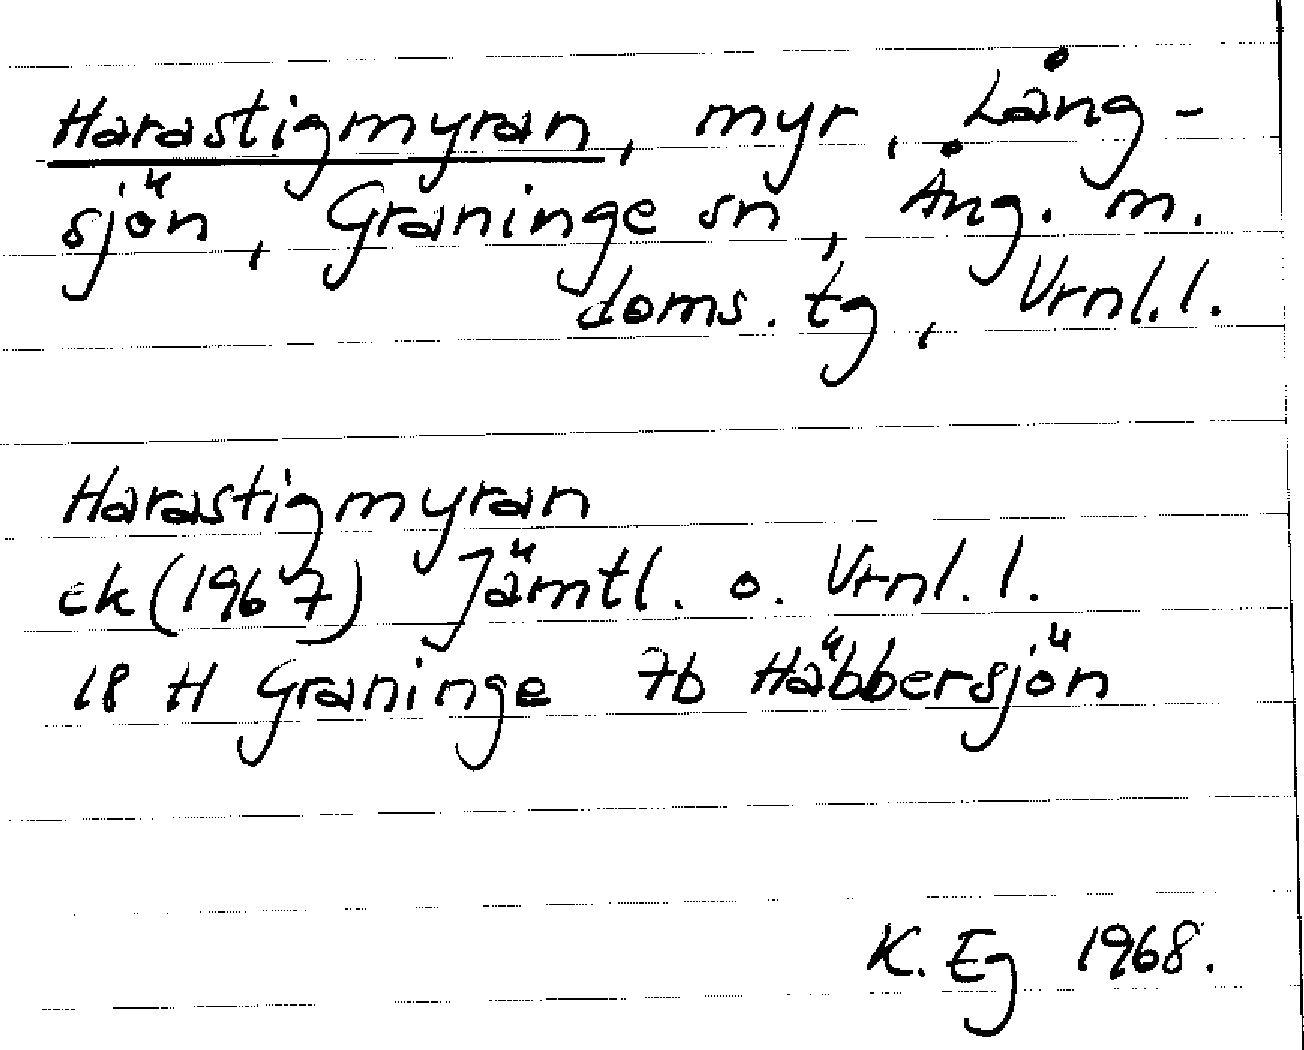 Harastigmyran, myr, Lång-
sjön, Graninge sn, Ång. m.
doms. tg, Vrnl. l.
Harastigmyran
ek (1967) Jämtl. o. Vrnl. l.
18 H Graninge 7b Häbbersjön
K. Eg 1968.